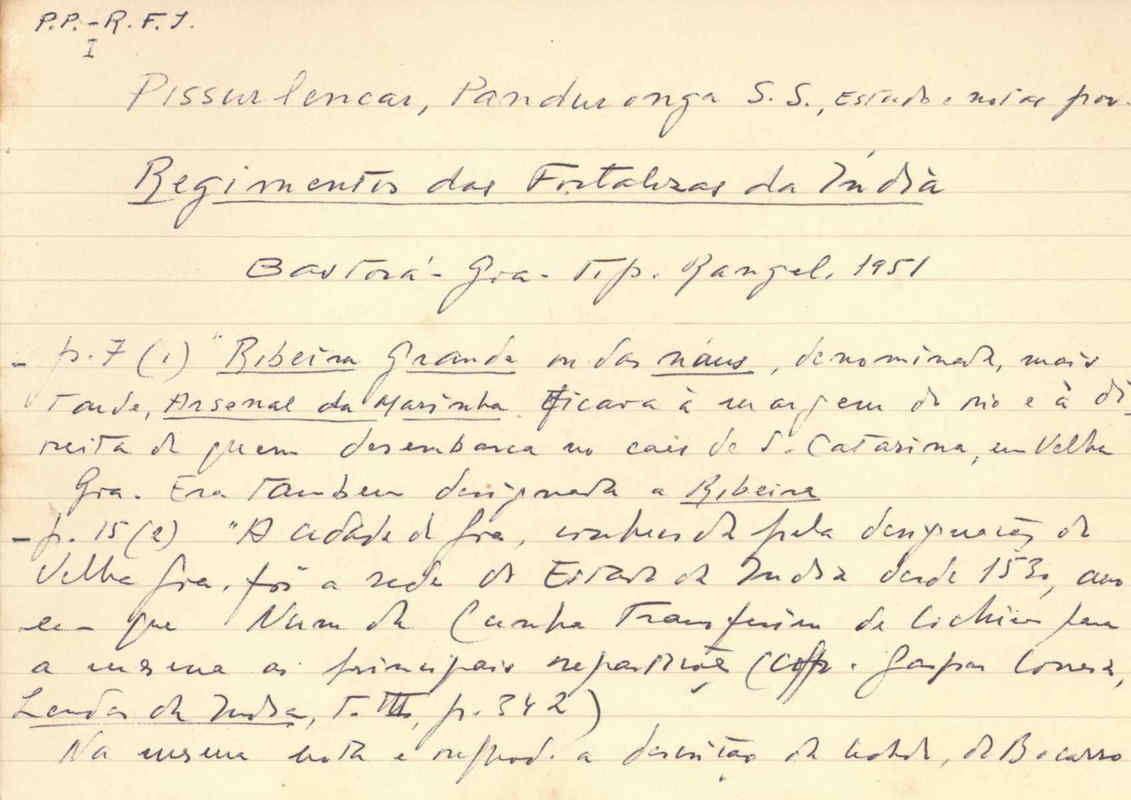 P.P.-R.F.I.
I
Pissurlencar, Panduronga S. S., Estudo e notas por.
Regimentos das Fortalezas da Índia
Bastorá - Goa - Tip. Rangel, 1951
- p. 7 (1) "Ribeira Grande ou das náus, denominada, mais
tarde, Arsenal da Marinha. Ficava à margem do rio e à di
reita de quem desembarca no cais de S. Catarina, em Velha
Goa. Era tambem designada a Ribeira
- p. 15 (2) "A cidade de Goa, conhecida pela designação de
Velha Goa, foi a sede do Estado da India desde 1530, ano
em que Nuno da Cunha transferiu de Cochim para
a mesma as principais repartições (Cfr. Gaspar Correia,
Lendas da India, T. III, p. 342)
Na mesma nota e a descrição da cidade, de Bocarro